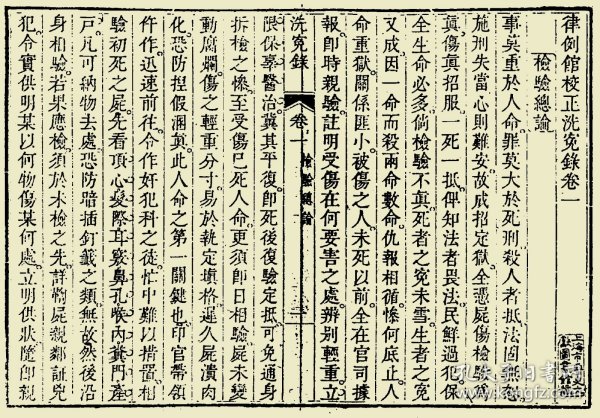 律例館校正洗冤錄卷一
檢驗總論
事莫重於人命罪莫大於死刑殺人者抵法固無
施刑失當心則難安故成招定獄全憑屍傷檢驗為
眞傷眞招服一死一抵俾知法者畏法民鮮過犯保
全生命必多倘檢驗不眞死者之冤未雪生者之冤
又成因一命而殺兩命數命仇報相循慘何底止人
命重獄關係匪小被傷之人未死以前全在官司據
報即時親驗註明受傷在何要害之處辨別輕重立
洗冤錄 卷一 檢驗總論 一
限保辜醫治冀其平復即死後復驗定抵可免通身
拆檢之慘至受傷已死人命更須即日相驗屍未變
動腐爛傷之輕重分寸易於執定填格遲久屍潰肉
化恐防捏假溷眞此人命之第一關鍵也印官帶領
仵作迅速前往令作奸犯科之徒忙中難以措置相
驗初死之屍先看頂心髮際耳竅鼻孔喉內糞門產
戶凡可納物去處恐防暗插釘籤之類無故然後沿
身相驗若果應檢須於未檢之先詳鞫屍親鄰証兇
犯令實供明某以何物傷某何處立明供狀隨即親
孔夫子旧书网